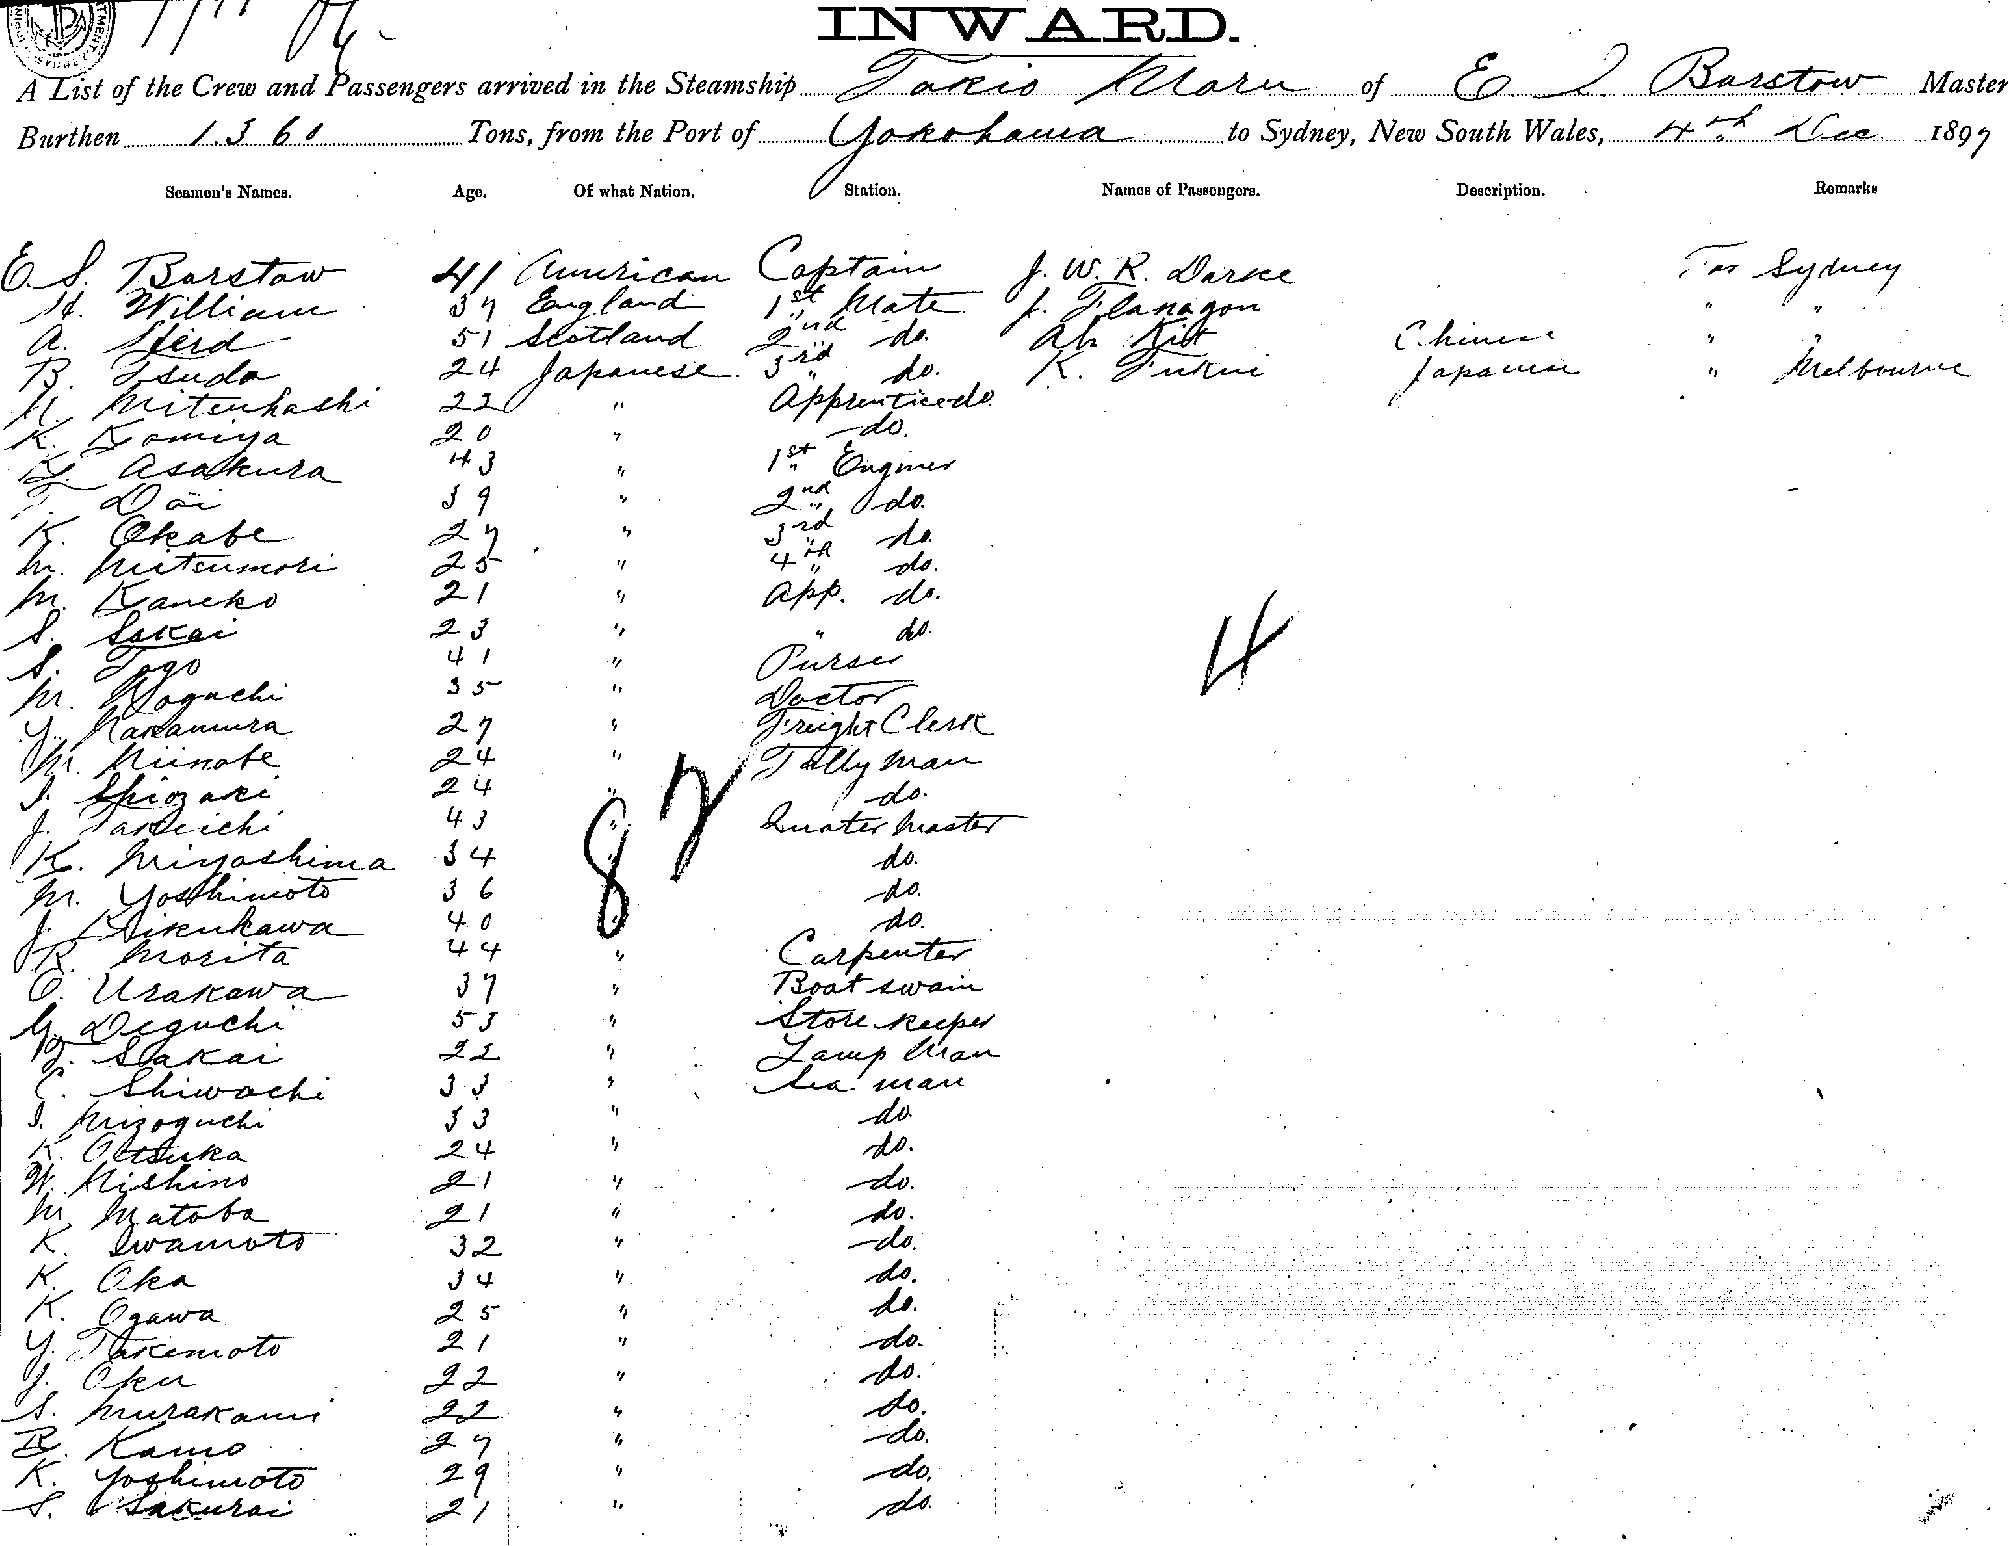 INWARD.
A List of the Crew and Passengers arrived in the Steamship Tokio Maru of E. S. Barstow Master
Burthen 1360 Tons, from the Port of Yokohama to Sydney, New South Wales, 4th Dec 1897
Seamen's Names. Age. Of what Nation. Station. Names of Passengers. Description. Remarks
E. S. Barstow 41 American Captain J. W. R. Darke For Sydney
H. William 37 England 1st Mate J. Flanagon " "
A. 51 Scotland 2nd do. Ah Kit Chinese " "
B. Tsuda 24 Japanese 3rd do. K. Fukui Japanese " Melbourne
N. Mitsuhashi 22 " Apprentice do.
K. Komiya 20 " do.
Asakura 43 " 1st Enginer
T. Doi 39 " 2nd do.
K. Okabe 27 " 3rd do.
M. Mitsumori 25 " 4th do.
M. Kaneko 21 " App. do.
S. Sakai 23 " " do.
S. Togo 41 " Purser
M. Noguchi 35 " Doctor
Y. Nakamura 27 " Freight Clerk
M. Miinobe 24 " Tally man
S. Shiozaki 24 " do.
J. Takeichi 43 " Quater Master
K. Miyashima 34 " do.
M. Yoshimoto 36 do.
J. Kikukawa 40 " do.
K. Morita 44 " Carpenter
O. Urakawa 37 " Boat swain
G. Deguchi 53 " Store keeper
Sakai 22 " Lamp Man
C. Shiwachi 33 " Sea man
S. Mizoguchi 33 " do.
K. Otsuka 24 " do.
W. Nishino 21 " do.
M. Matoba 21 " do.
K. Iwamoto 32 " do.
K. Oka 34 " do.
K. Ogawa 25 " do.
Y. Takemoto 21 " do.
J. Oku 22 " do.
S. Murakami 22 " do.
B. Kamo 27 " do.
K. Yoshimoto 29 " do.
S. Sakurai 21 " do.
4
82